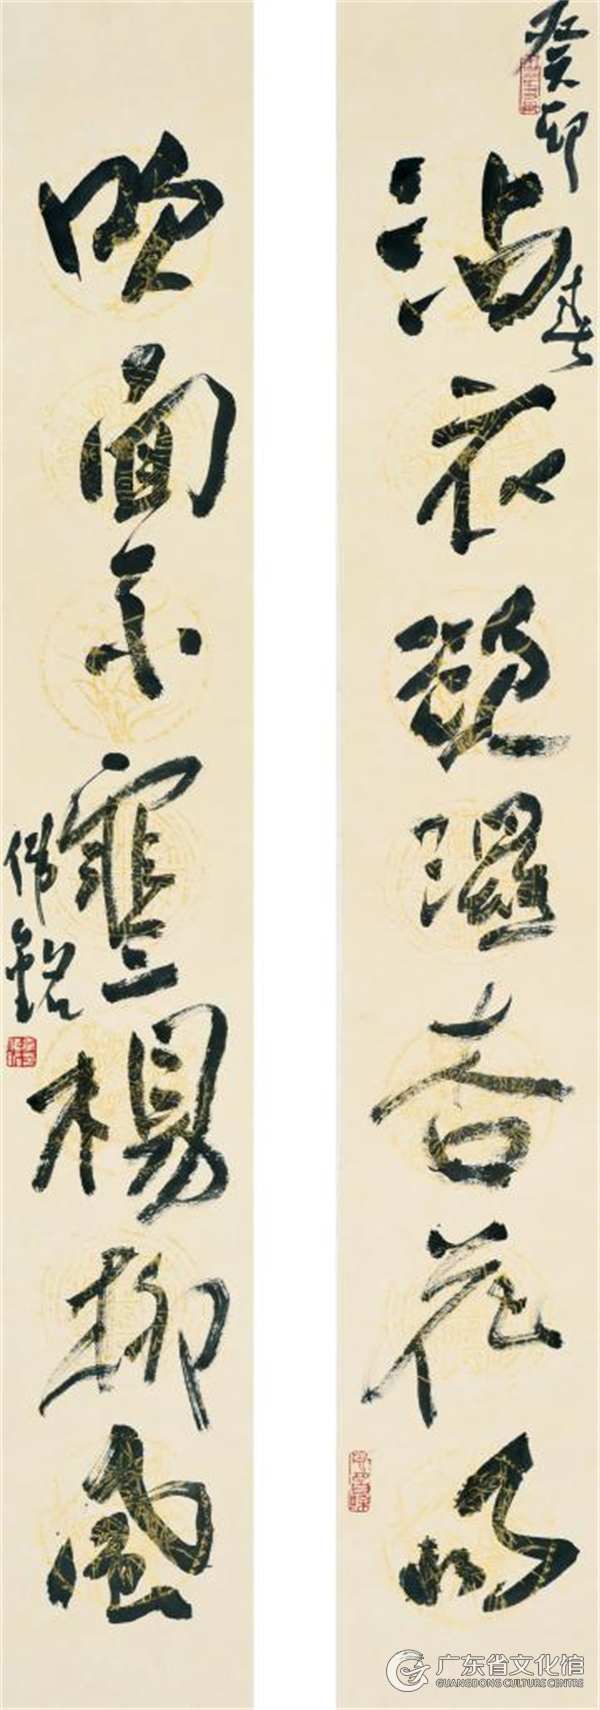 癸卯春
沾衣欲濕杏花雨
吹面不寒楊柳風
偉銘
广东省文化馆
GUANGDONG CULTURE CENTRE